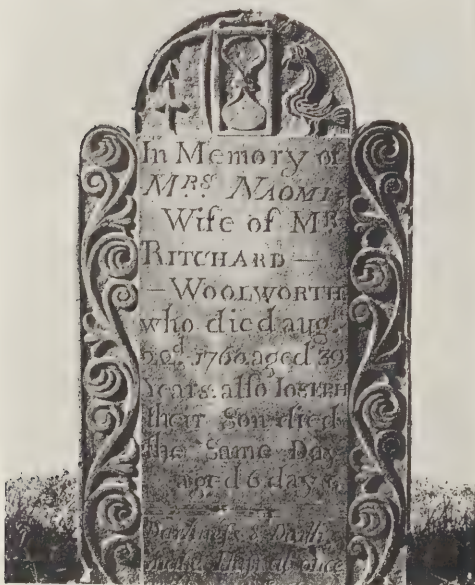 In Memory of
MRS. NAOMI
Wife of MR
RITCHARD —
— WOOLWORTH
who died aug.
1760, aged 39
Years. also IOSEPH
their Son died
the Same Day
aged 6 days
Darkness & Death
make